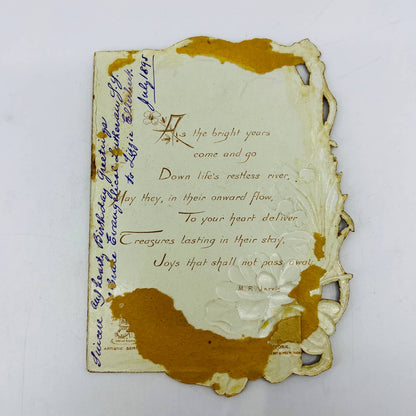 As the bright years
come and go
Down life's restless river,
May they, in their onward flow,
To your heart deliver
Treasures lasting in their stay,
Joys that shall not pass away.
M. R. 
Sincere and hearty Birthday Greetings
Evangelical Lutheran S.S.
to Lizzie
July 1895
ARTISTIC